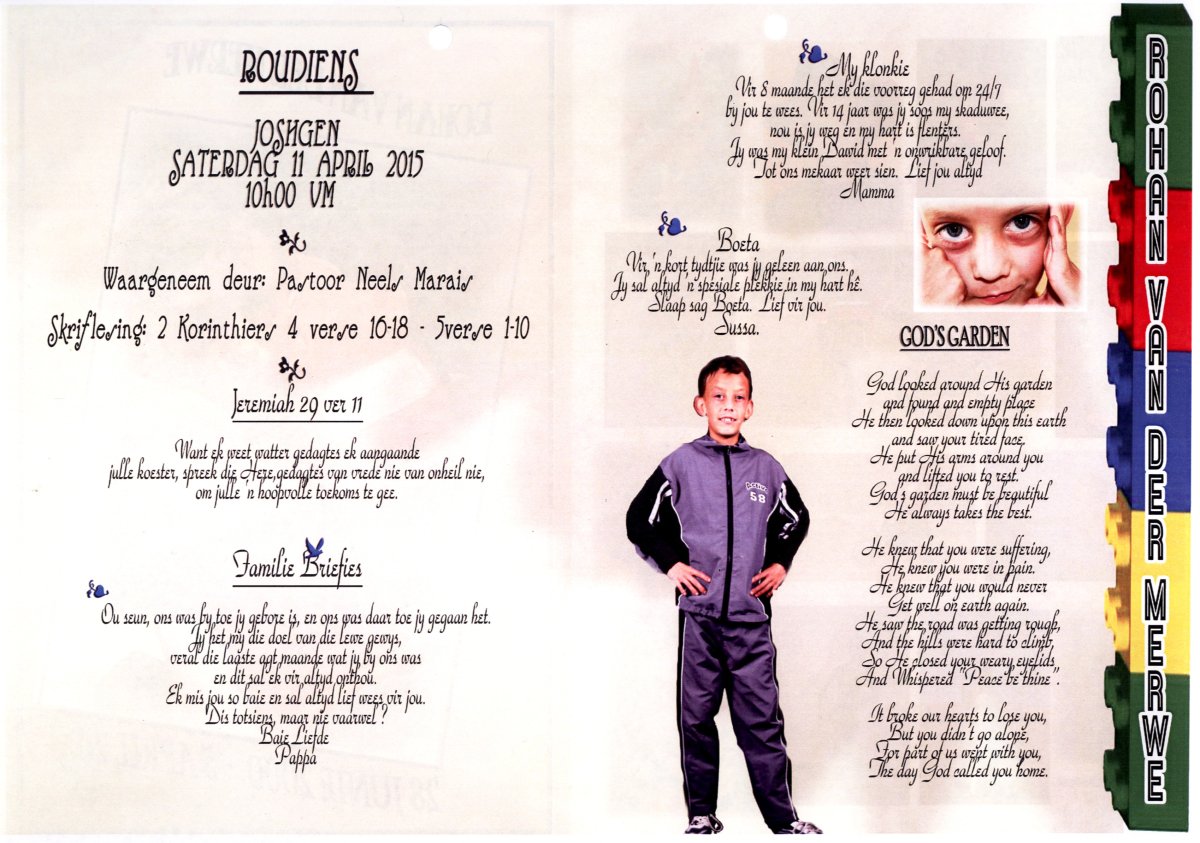 ROUDIENS
JOSHGEN
SATERDAG 11 APRIL 2015
10h00 VM
Waargeneem deur: Pastoor Neels Marais
Skriflesing: 2 Korinthiers 4 verse 16-18 - 5verse 1-10
Jeremiah 29 ver 11
Want ek weet watter gedagtes ek aangaande
julle koester, spreek die Here,gedagtes van vrede nie van onheil nie,
om julle 'n hoopvolle toekoms te gee.
Familie Briefies
Ou seun, ons was by toe jy gebore is, en ons was daar toe jy gegaan het.
Jy het my die doel van die lewe gewys,
veral die laaste agt maande wat jy by ons was
en dit sal ek vir altyd onthou.
Ek mis jou so baie en sal altyd lief wees vir jou.
'Dis totsiens, maar nie vaarwel ?
Baie Liefde
Pappa
My klonkie
Vir 8 maande het ek die voorreg gehad om 24/7
by jou te wees. Vir 14 jaar was jy soos my skaduwee,
nou is jy weg en my hart is flenters.
Jy was my klein Dawid met 'n onwrikbare geloof.
Tot ons mekaar weer sien. Lief jou altyd
Mamma
Boeta
Vir 'n kort tydtjie was jy geleen aan ons.
Jy sal altyd 'n spesiale plekkie in my hart hê.
Slaap sag Boeta. Lief vir jou.
Sussa.
GOD'S GARDEN
God looked around His garden
and found and empty place
He then looked down upon this earth
and saw your tired face,
He put His arms around you
and lifted you to rest.
God's garden must be beautiful
He always takes the best.
He knew that you were suffering,
He knew you were in pain.
He knew that you would never
Get well on earth again.
He saw the road was getting rough,
And the hills were hard to climb,
So He closed your weary eyelids
And Whispered "Peace be thine".
It broke our hearts to lose you,
But you didn't go alone,
For part of us went with you,
The day God called you home.
Active
58
ROHAN VAN DER MERWE